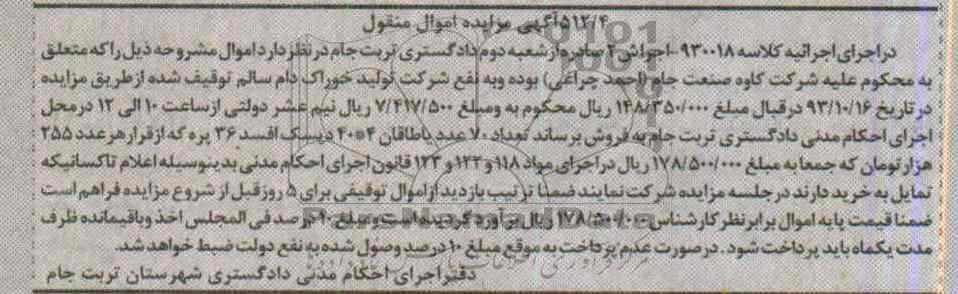 ۵۱۲/۴ آگهی مزایده اموال منقول
در اجرای اجرائیه کلاسه ۹۳۰۰۱۸-اجرائی ۲ صادره از شعبه دوم دادگستری تربت جام در نظر دارد اموال مشروحه ذیل را که متعلق
به محکوم علیه شرکت کاوه صنعت جام (احمد چراغی) بوده و به نفع شرکت تولید خوراک دام سالم توقیف شده از طریق مزایده
در تاریخ ۹۳/۱۰/۱۶ در قبال مبلغ ۱۴۸/۳۵۰/۰۰۰ ریال محکوم به و مبلغ ۷/۴۱۷/۵۰۰ ریال نیم عشر دولتی از ساعت ۱۰ الی ۱۲ در محل
اجرای احکام مدنی دادگستری تربت جام به فروش برساند تعداد ۷۰ عدد یاطاقان ۴*۴۰ دیسک افست ۳۶ پره که از قرار هر عدد ۲۵۵
هزار تومان که جمعا به مبلغ ۱۷۸/۵۰۰/۰۰۰ ریال در اجرای مواد ۱۱۸ و ۱۲۲ و ۱۲۳ قانون اجرای احکام مدنی بدینوسیله اعلام تا کسانیکه
تمایل به خرید دارند در جلسه مزایده شرکت نمایند ضمنا ترتیب بازدید از اموال توقیفی برای ۵ روز قبل از شروع مزایده فراهم است
ضمنا قیمت پایه اموال برابر نظر کارشناس ۱۷۸/۵۰۰/۰۰۰ ریال برآورد گردیده است و مبلغ ۱۰ درصد فی المجلس اخذ و باقیمانده ظرف
مدت یکماه باید پرداخت شود. در صورت عدم پرداخت به موقع مبلغ ۱۰ درصد وصول شده به نفع دولت ضبط خواهد شد.
دفتر اجرای احکام مدنی دادگستری شهرستان تربت جام